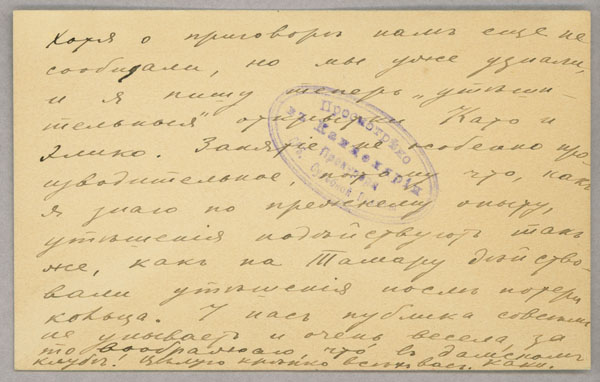 Хотя о приговорѣ намъ еще не
сообщали, но мы уже узнали,
и я пишу теперь „утѣши-
тельныя" открытки Като и
Элико. Занятіе не особенно про
изводительное, потому что, какъ
я знаю по прежнему опыту,
утѣшенія подѣйствуютъ такъ
же, какъ на Тамару дѣйство-
вали утѣшенія послѣ потери
кольца. У насъ публика совсѣмъ
не унываетъ и очень весела, за
то воображаю, что въ дамскомъ
клубѣ! Цѣлую крѣпко всѣхъ васъ.
Просмотрѣно
въ Канцеляріи
Прокурора
Судебной